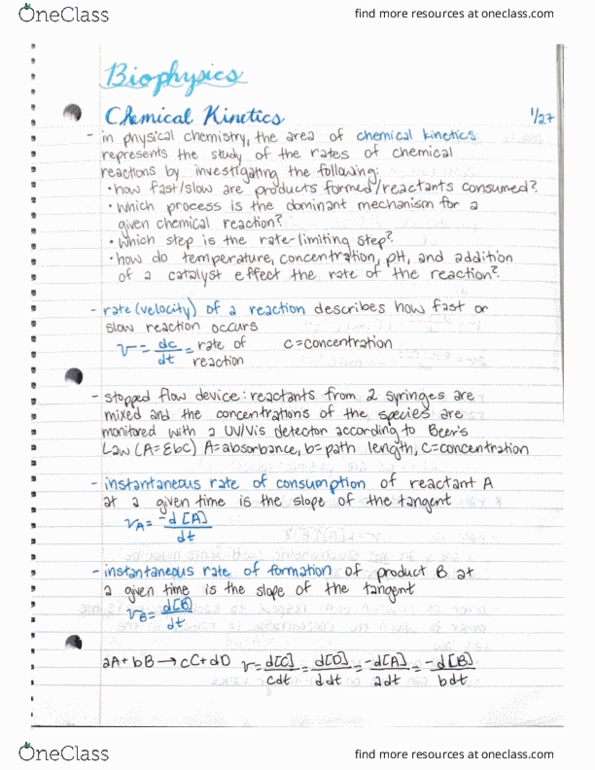 OneClass find more resources at oneclass.com
Biophysics
Chemical Kinetics 1/27
- in physical chemistry, the area of chemical kinetics
represents the study of the rates of chemical
reactions by investigating the following:
• how fast/slow are products formed/reactants consumed?
• which process is the dominant mechanism for a
given chemical reaction?
• which step is the rate-limiting step?
• how do temperature, concentration, pH, and addition
of a catalyst effect the rate of the reaction?
- rate (velocity) of a reaction describes how fast or
slow reaction occurs
v = dc/dt = rate of reaction c = concentration
- stopped flow device: reactants from 2 syringes are
mixed and the concentrations of the species are
monitored with a UV/Vis detector according to Beer's
Law (A=Ɛbc) A=absorbance, b=path length, c=concentration
- instantaneous rate of consumption of reactant A
at a given time is the slope of the tangent
vA = -d[A]/dt
- instantaneous rate of formation of product B at
a given time is the slope of the tangent
vB = d[B]/dt
aA + bB → cC + dD v = d[C]/cdt = d[D]/ddt = -d[A]/adt = -d[B]/bdt
OneClass find more resources at oneclass.com